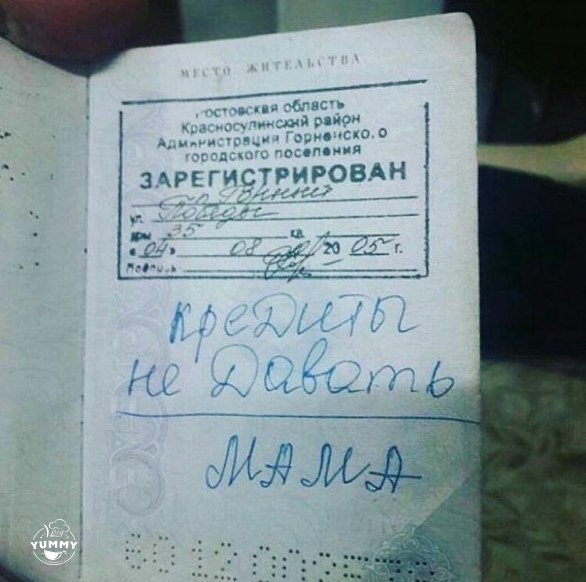 МЕСТО ЖИТЕЛЬСТВА
Ростовская область
Красносулинский район
Администрации Горненского
городского поселения
ЗАРЕГИСТРИРОВАН
Горный
ул. Победы
дом 35 кв.
«04» 08 2005 г.
Подпись
кредиты
не давать
МАМА
YUMMY